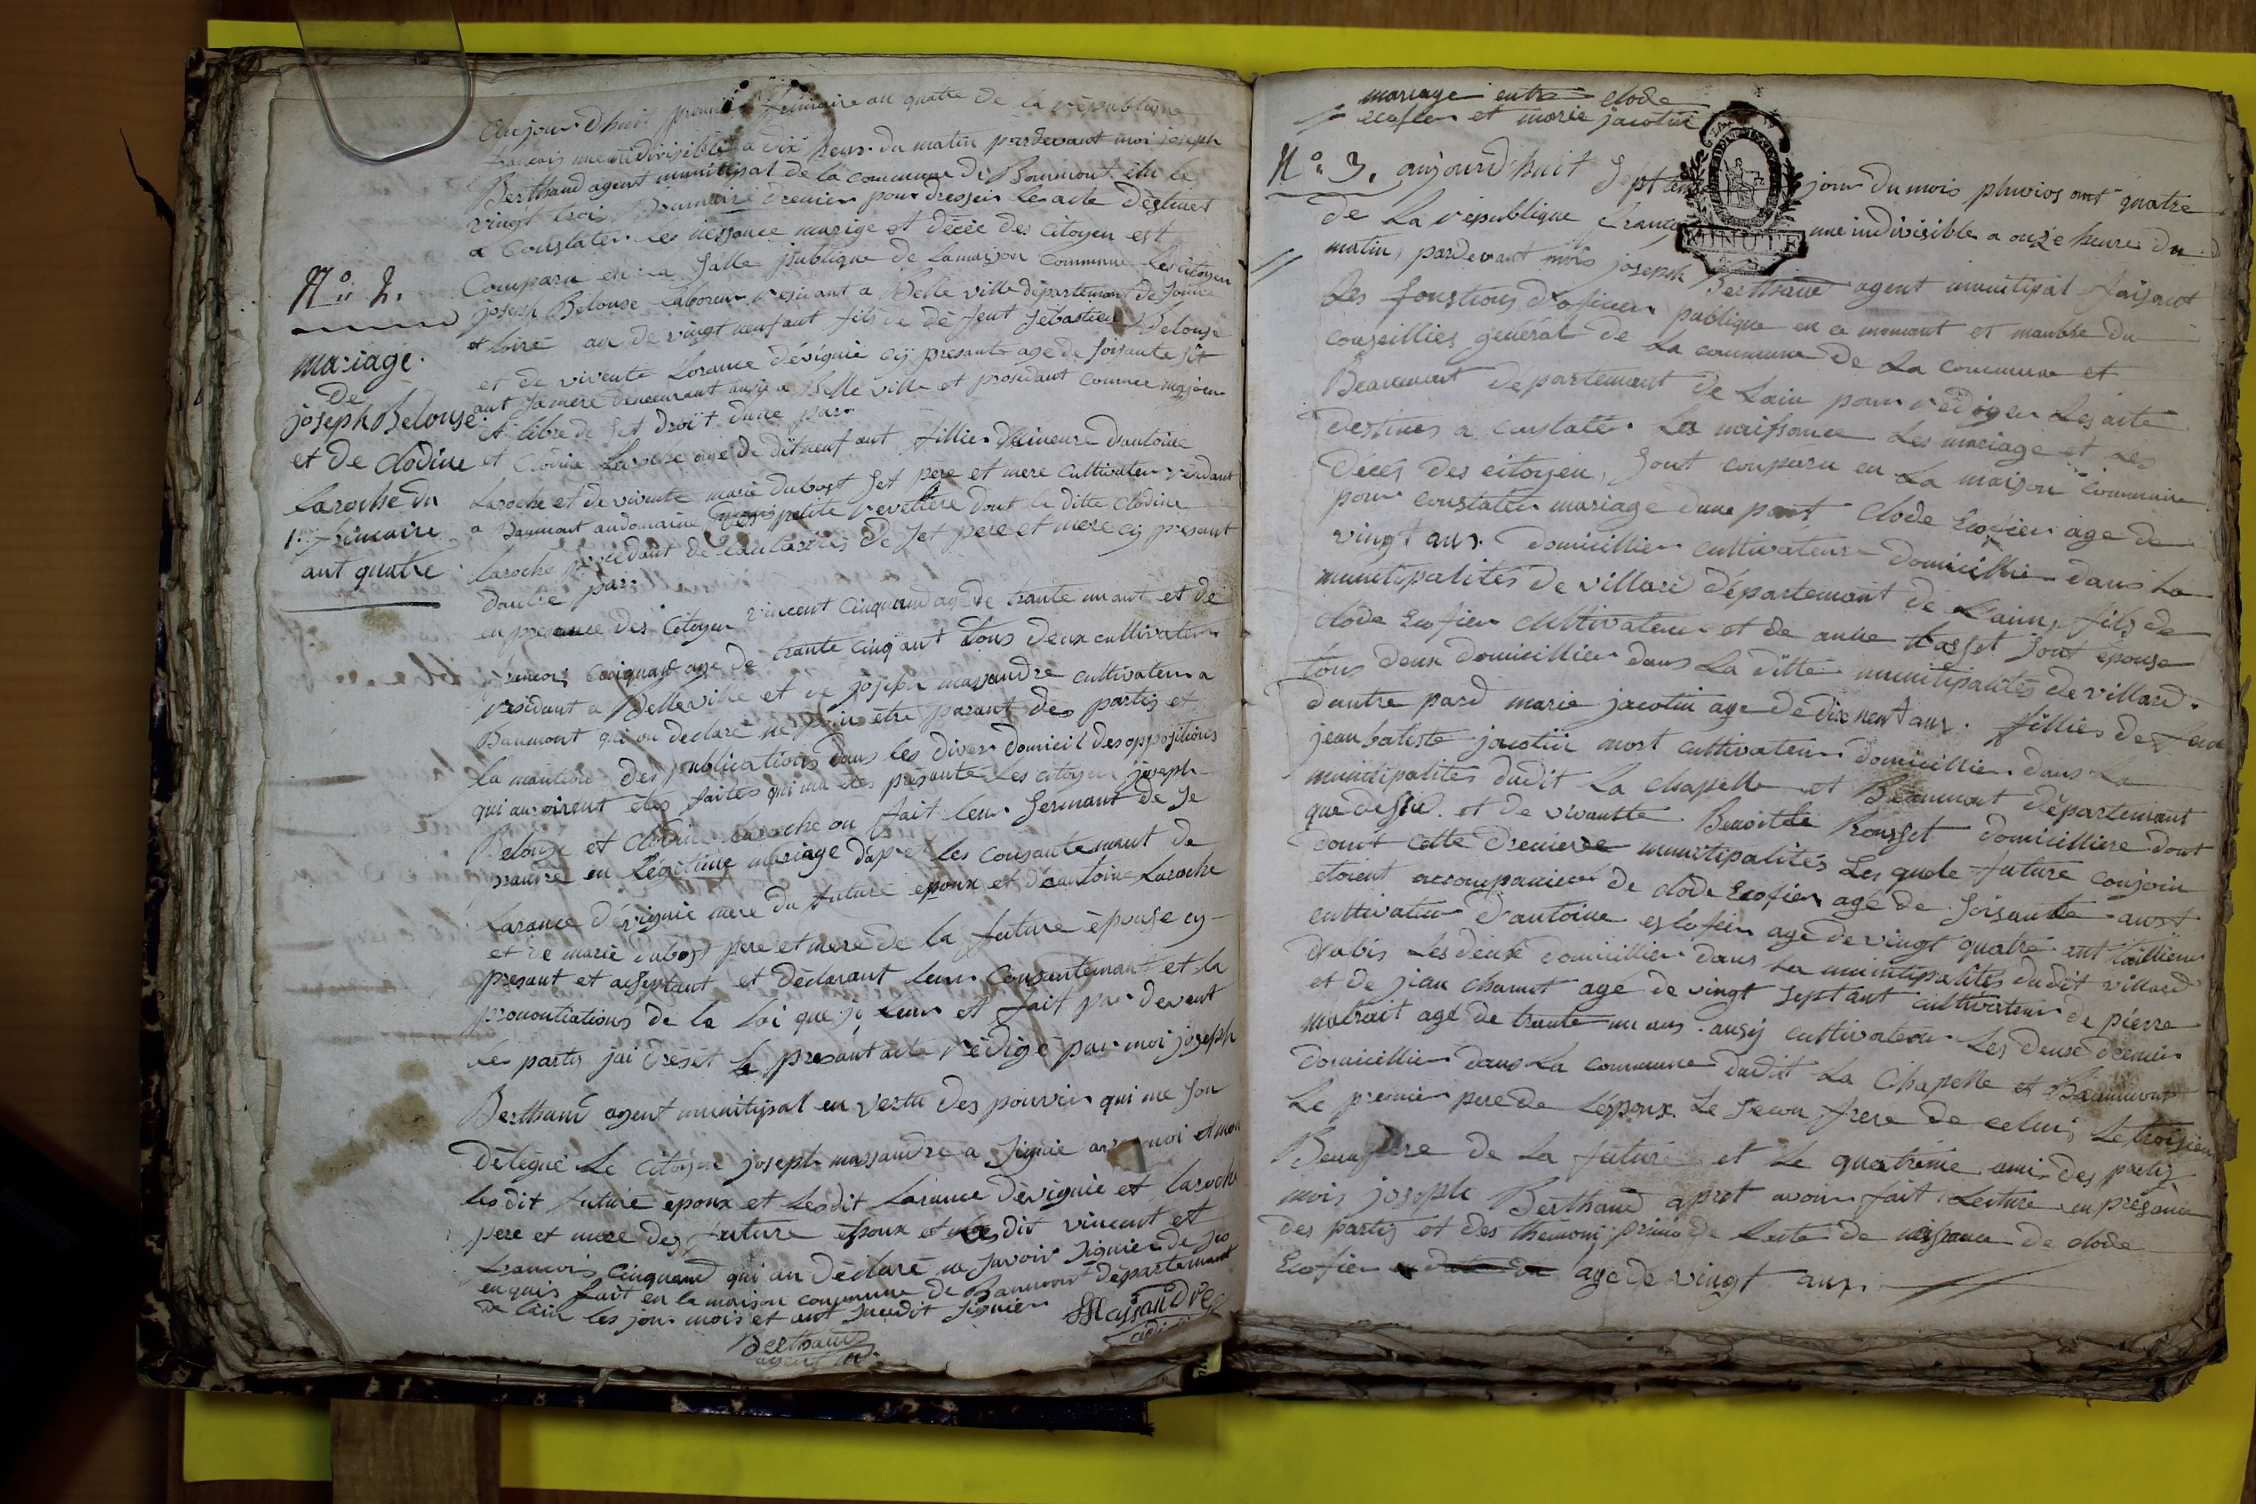 aujourdhui premier frimaire an quatre de la république
francois une indivisible a dix heur du matin pardevant moi joseph
Berthaud agent munitipal de la commune de Bommont élu le
vingt trois brumaire drenier pour dresser les acte déstinet
a Constater les nessance marige et décée des citoyen est
Comparu en la Salle publique de lamaison commune Les citoyen
joseph Belouse laboreur residant a Belle ville département de Sonne
et loire age de vingt neuf ant fils de dé feut Sebastien Belouse
et de vivente Lorance dévignie cy presante age de soisante sit
ant Sa mere demeurant ausie a Belle ville et prosedant comme majeur
et libre de set droit dune par
et clodine Laroche age de ditneuf ant fillie mineure dantoine
Laroche et de vivente marie dubost set pere et mere cultivateur résidant
a Baumont audomaine petite revettere dont la ditte clodine
Laroche procédant de lautorités de set pere et mere cy presant
dautre par
en presence des citoyen vincent cinquand age de trante un ant et de
francois cinquand age de trante cinq ant tous deux cultivateur
résidant a Belleville et de joseph massandre cultivateur a
Baumont qui on declaré ne point être parant des partis et
La mantion des publications dans les diver domicil des oppositions
qui auroirent étés faites qui ma étés présanté Les citoyen joseph
Belouse et clodine Laroche on fait leur sermant de se
prandre en Légitime mariage dapret les consantemant de
Larance dévignie mere du future epoux et dantoine Laroche
et de marie dubost pere et mere de la future épouse cy
presant et aseptant et déclarant leur consentemant et la
prononciations de la loi que jé leur et fait par devant
les partis jai dréset le presant acte rédigé par moi joseph
Berthaud agent munitipal en vertu des pouvoir qui me son
délégué Le citoyen joseph massandre a signié avec moi et non
lesdit future époux et lesdit Larance dévignie et Laroche
pere et mere des future epoux et lesdit vincent et
francois cinquand qui on déclaré ne savoir signier de se
enquis fait en la maison commune de Baumont département
de lain les jour mois et ant susdit signier
Massandre
Berthaud
agent
N° 2.
mariage
De
joseph Belouse
et de clodine
Laroche du
1er frimaire
ant quatre
mariage entre clode
ecofier et marie jacotin
N° 3. aujourd'huit Septieme jour du mois pluvios ant quatre
MINUTE
de La république française une indivisible a onze heures du
matin, pardevant mois joseph Berthaud agent munitipal faisant
Les fonctions d'oficier publique en ce momant et manbre du
conseillies général de La commune de La commune et
Beaumont département de Lain pour rédiger Les acte
destines a constater Les naissance Les mariage et Les
Décés des citoyen, sont comparu en La maison commune
pour constater mariage dune part clode Ecofier age de
vingt ans domicillier cultivateur domicillier dans La
munitipalités de villard département de L'ain, fils de
clode Ecofier cultivateur et de anne Rosset sont épouse
tous deux domicillier dans La ditte munitipalités de villard
dautre pard marie jacotin age de dix neuf ans fillies de feu
jeanbatiste jacotin mort cultivateur domicillier dans La
munitipalités dudit La chapelle et Beaumont département
que dessu et de vivantte Benoitte Rousset domicilliere dont
dont cette dreniere munitipalités Les quele future conjoin
étoient accompanier de clode Ecofier agé de soisante ans
cultivateur dantoine escofier age de vingt quatre ant taillieur
d'abis Les deuxe domicillier dans La munitipalités dudit villard
et de jean chanut age de vingt sept ant cultivateur de pierre
matrait agé de trante un ans ausij cultivateur Les deuxe drenier
domicillier dans La commune dudit La Chapelle et Beaumont
Le premier pere de Lépoux Le secon frere de celui Letroisiem
Beaufrere de La future et Le quatrième ami des partis
mois joseph Berthaud apret avoir fait Lecture en présance
des partis et des thémoin primo de Lacte de naissance de clode
Ecofier age de vingt ans